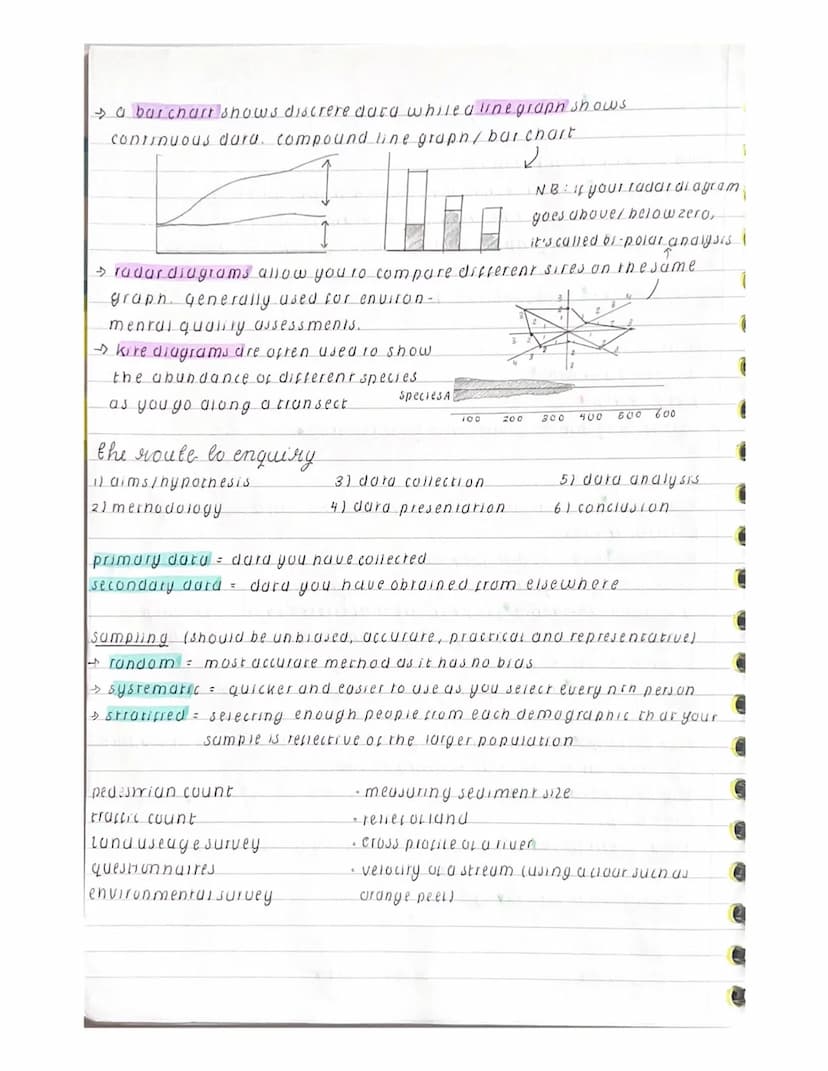 → a bar chart shows discrete data while a line graph shows
continuous data. compound line graph / bar chart
NB: if your radar diagram
goes above/below zero,
it's called bi-polar analysis
→ radar diagrams allow you to compare different sites on the same
graph. Generally used for environ-
mental quality assessments.
→ kite diagrams are often used to show
the abundance of different species
as you go along a transect
Species A
100 200 300 400 500 600
the route to enquiry
1) aims/hypothesis 3) data collection 5) data analysis
2) methodology 4) data presentation 6) conclusion
primary data = data you have collected
secondary data = data you have obtained from elsewhere
sampling (should be unbiased, accurate, practical and representative)
→ random = most accurate method as it has no bias
→ systematic = quicker and easier to use as you select every nth person
→ stratified = selecting enough people from each demographic that your
sample is reflective of the larger population
pedestrian count • measuring sediment size
traffic count • relief of land
land useage survey • cross profile of a river
questionnaires • velocity of a stream (using a float such as
environmental survey orange peel)